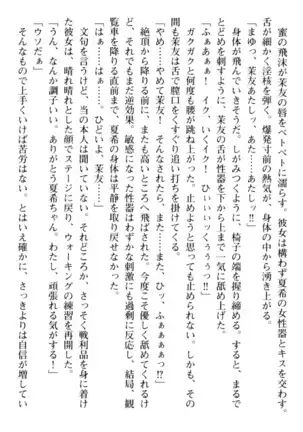 蜜の飛沫が茉友の唇をベトベトに濡らす。彼女は構わず夏希の女性器とキスを交わす。
舌が細かく淫核を弾く。爆発寸前の熱気が、身体の中から湧き上がる。
「まゆ、茉友あたし……また……あたしッ!!」
身体が飛んでいきそうだ。しがみつくように、椅子の端を握り締める。すると、まるで
とどめを刺すように、茉友の舌が性器を下から上まで一気に舐め上げた。
「ふぁあぁぁ! イク、いくイク! ひぃぃいッくぅぅうっ!!」
ガクガクと何度も腰が跳ね上がる。止めようと思っても止められない。しかも、その
間も茉友は舌で膣口をすくすぐり追い打ちを掛けてくる。
「やめ……やめて茉友! そんなされたら、また……また、ひッ、ふぁぁぁぁっ!?」
絶頂から降りる前に、またも高いところへ飛ばされた。今度こそ優しく舐めてくれるけ
ど、それでもまだ逆効果。敏感になった性器はわずかな刺激にも過剰に反応し、結局、観
覧車を降りるまでに、夏希の身体は平静を取り戻せなかった。
「はぁ……はぁ……。ひどいよ、茉友……」
文句を言うけど、当の本人は聞いていない。それどころか、さっそく戦利品を身に着け
た彼女は、晴れ晴れとした顔でステージに戻り、ウォーキングの練習を再開した。
「うん、なんか調子いい。ありがとう夏希ちゃん。わたし、頑張れる気がする!」
「ウソだぁ」
そんなもので上手くいけば苦労はない。とはいえ確かに、さっきよりは自信が増してい